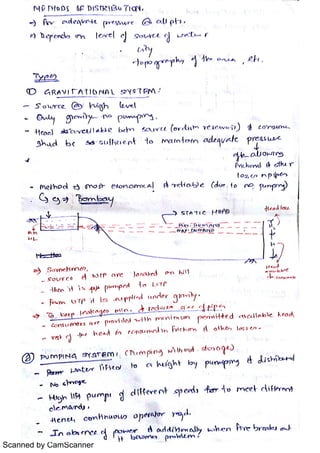 METHODS OF DISTRIBUTION.
→ For adequate pressure @ all pts.
→ Depends on level of source of water
city
topography of the area, etc.
Types
① GRAVITATIONAL SYSTEM:
- Source @ high level
- Only gravity no pumping.
- Head available betn source (or dist reservoir) & consumer
shud be sufficient to maintain adequate pressure
after allowing
frictional & other
losses in pipes
- method is most economical & reliable (due to no pumping)
eg → Bombay
→ STATIC HEAD
Head loss
Min. Demand
Max. Demand
Head
available
to consumer
→ Sometimes,
- source & WTP are located on hill
- then it is pumped to WTP
- from WTP it is supplied under gravity.
→ To keep leakages min. & reduce size of pipes
- consumers are provided with minimum permitted available head
- rest of the head is consumed in friction & other losses.
② PUMPING SYSTEM: (Pumping without storage)
- water lifted to a height by pumping & distributed
- No storage
- High lift pumps of different speeds to meet different
demands.
- Hence, continuous operator reqd.
- In absence of power & additionally when fire breaks out
it becomes problem!
Scanned by CamScanner